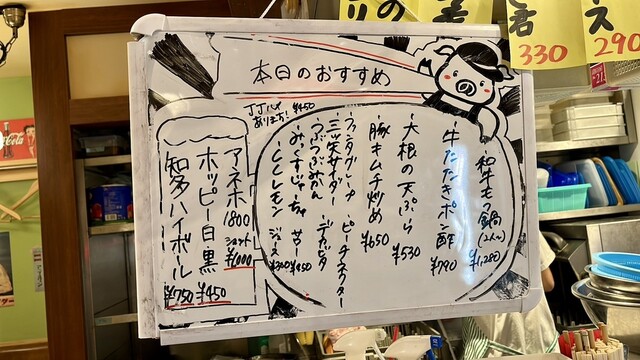 本日のおすすめ
和牛もつ鍋(2人〜) ¥1,280
牛たたきポン酢 ¥790
大根の天ぷら ¥530
豚キムチ炒め ¥650
ファンタグレープ ・ピーチネクター
三ツ矢サイダー ・デカビタ
つぶつぶみかん
・CCレモン
サワー ¥450
ジュース ¥300
¥450
あります!
アネホ 1800 ショット ¥1,000
ホッピー白黒 ¥450
知多ハイボール ¥750
の
君
330
ス
290
Coca-Cola